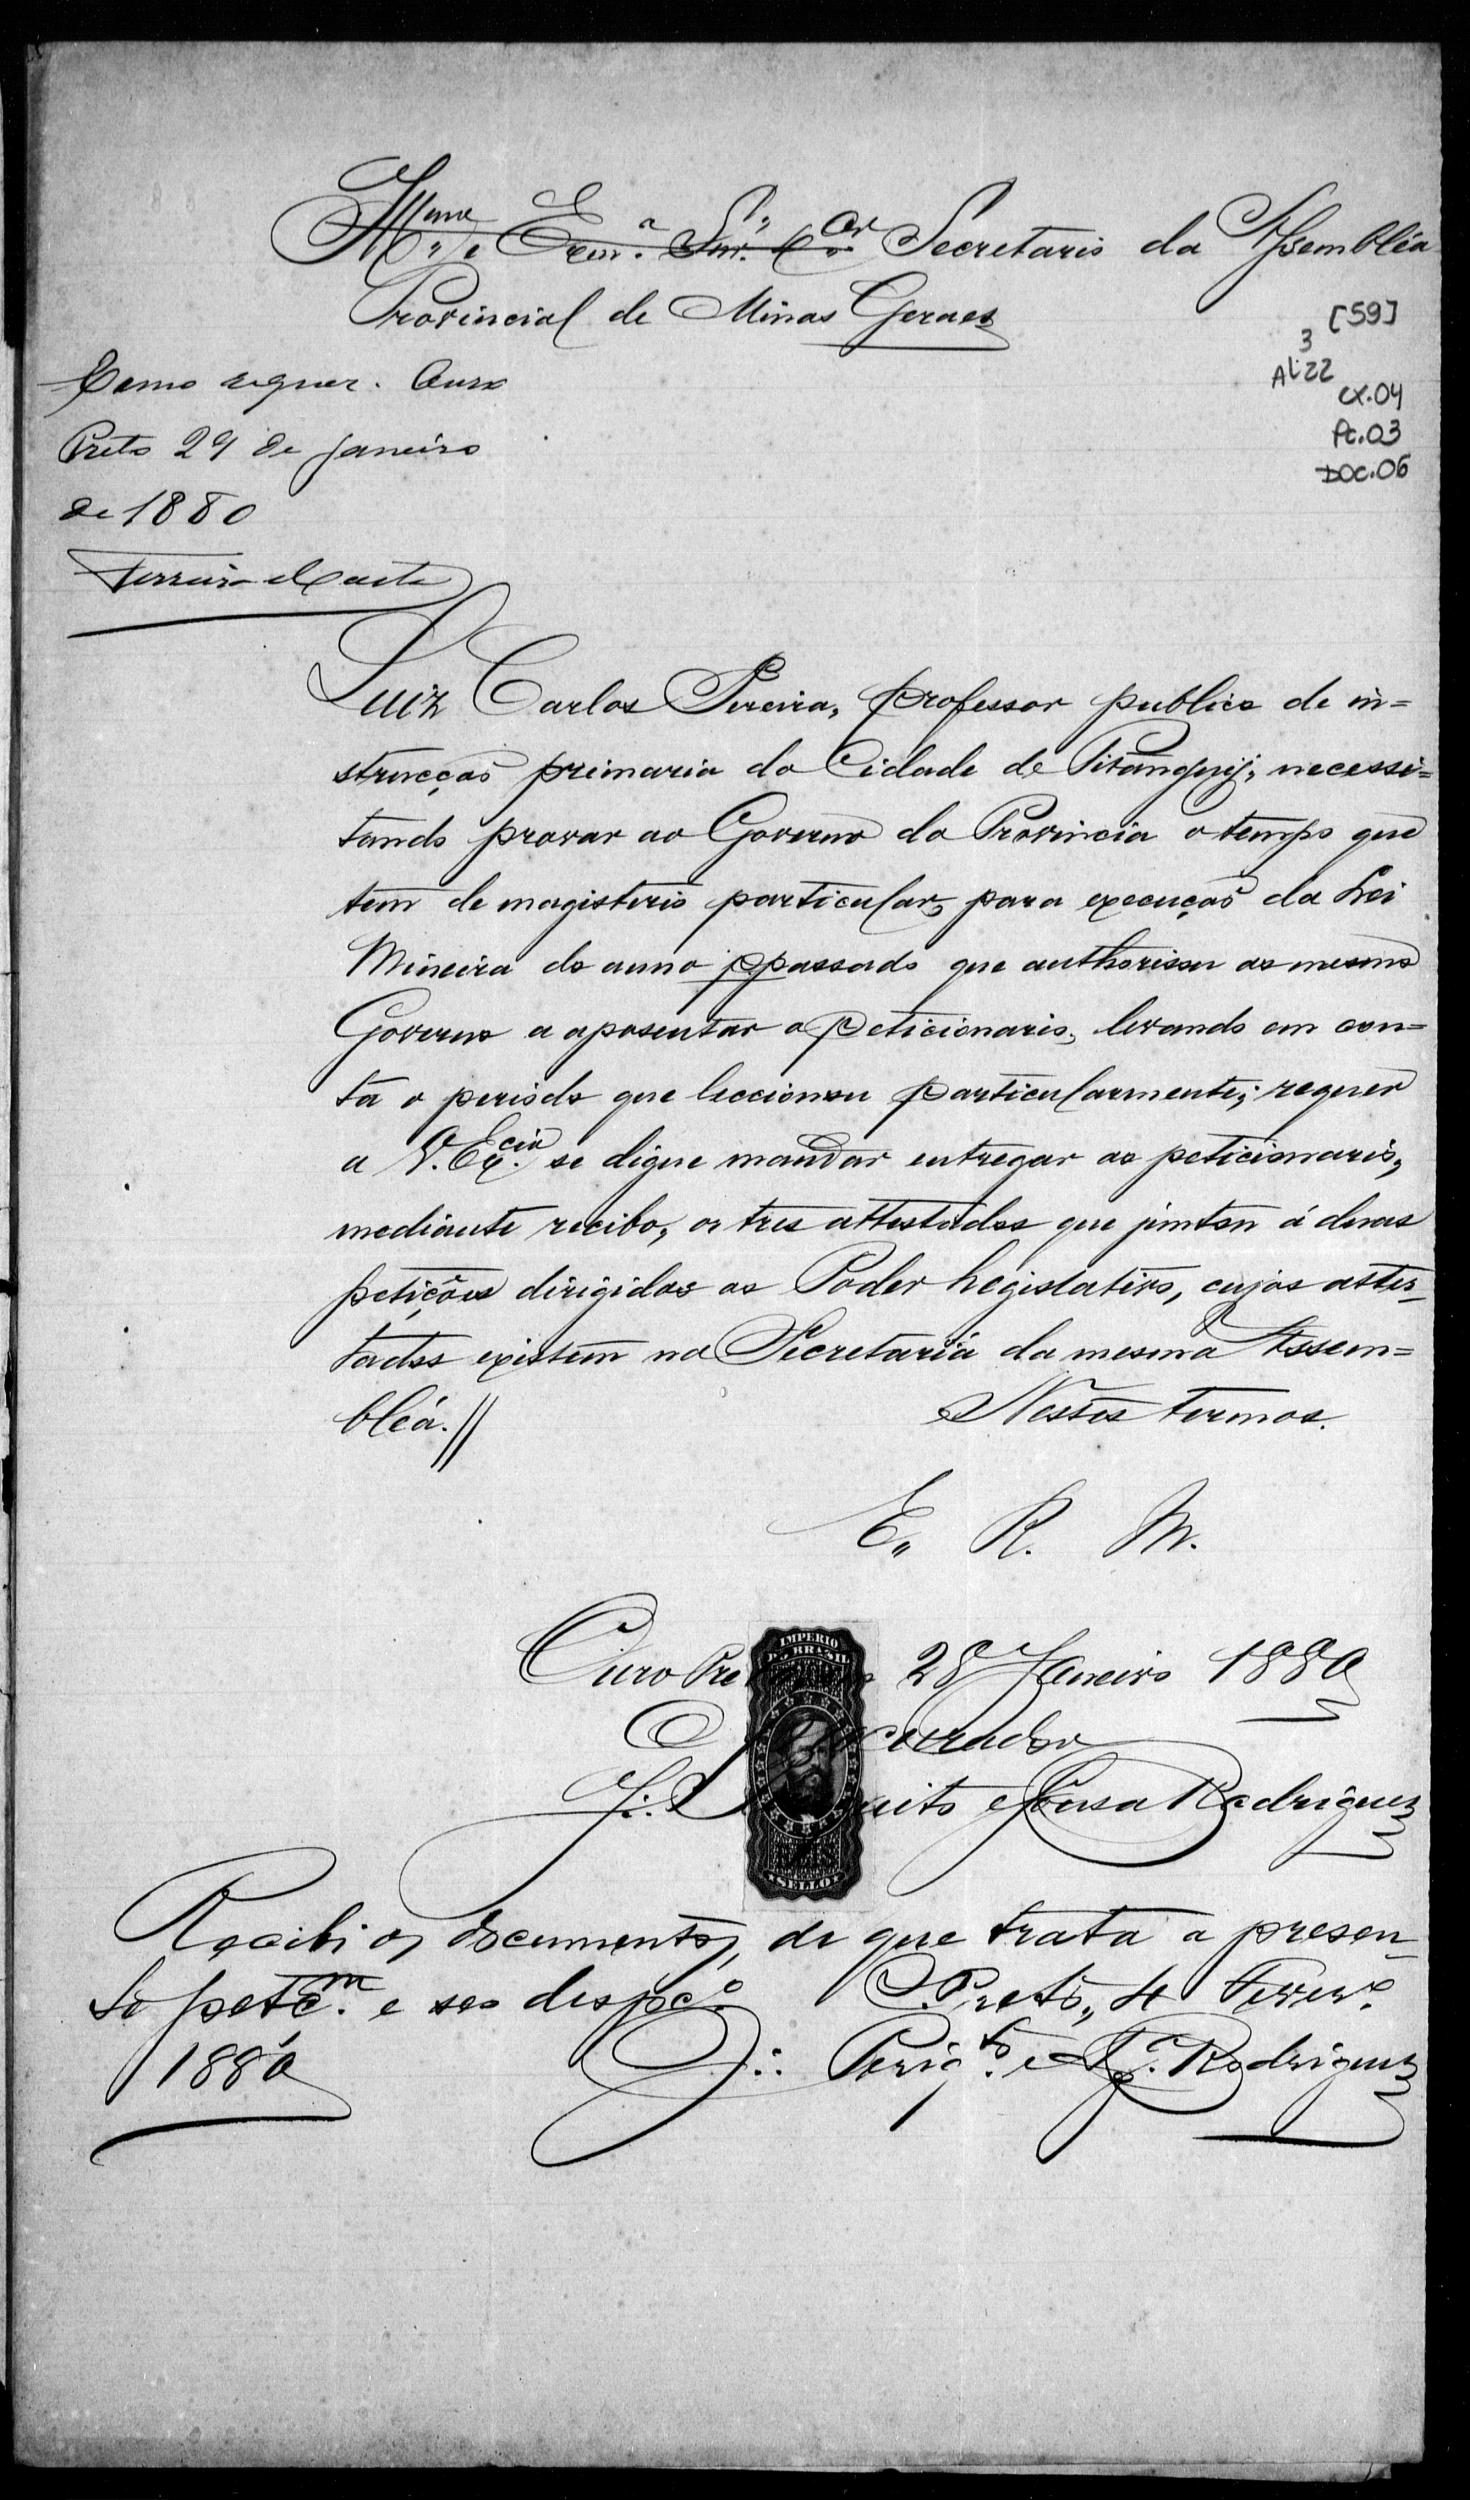 Illmo e Exmo Snr. Dor Secretario da Assembléa
Provincial de Minas Geraes
[59]
3
Al:22
cx.04
Pc.03
DOC.06
Como requer. Ouro
Preto 29 de janeiro
de 1880
Ferreira
Luiz Carlos Pereira, professor publico de in=
strucção primaria da Cidade de Pitanguy, necessi=
tando provar ao Governo da Provincia o tempo que
tem de magisterio particular, para execução da Lei
Mineira do anno ppassado que authorisou ao mesmo
Governo a aposentar o peticionario, levando em con=
ta o periodo que leccionou particularmente; requer
a V. Excia. se digne mandar entregar ao peticionario,
mediante recibo, os tres attestados que juntou á duas
petições dirigidas ao Poder Legislativo, cujos attes=
tados existem na Secretaria da mesma Assem=
bléa.//
Nestes termos.
E. R. M.
Ouro Pre 28 Janeiro 1880
O curador
IMPERIO
DO BRASIL
SELLO
J. Sousa Rodrigues
Recebi os documentos, de que trata a presen=
te petçm. e seo despco. O. Preto, 4 Fevero.
1880
J. Rodrigues